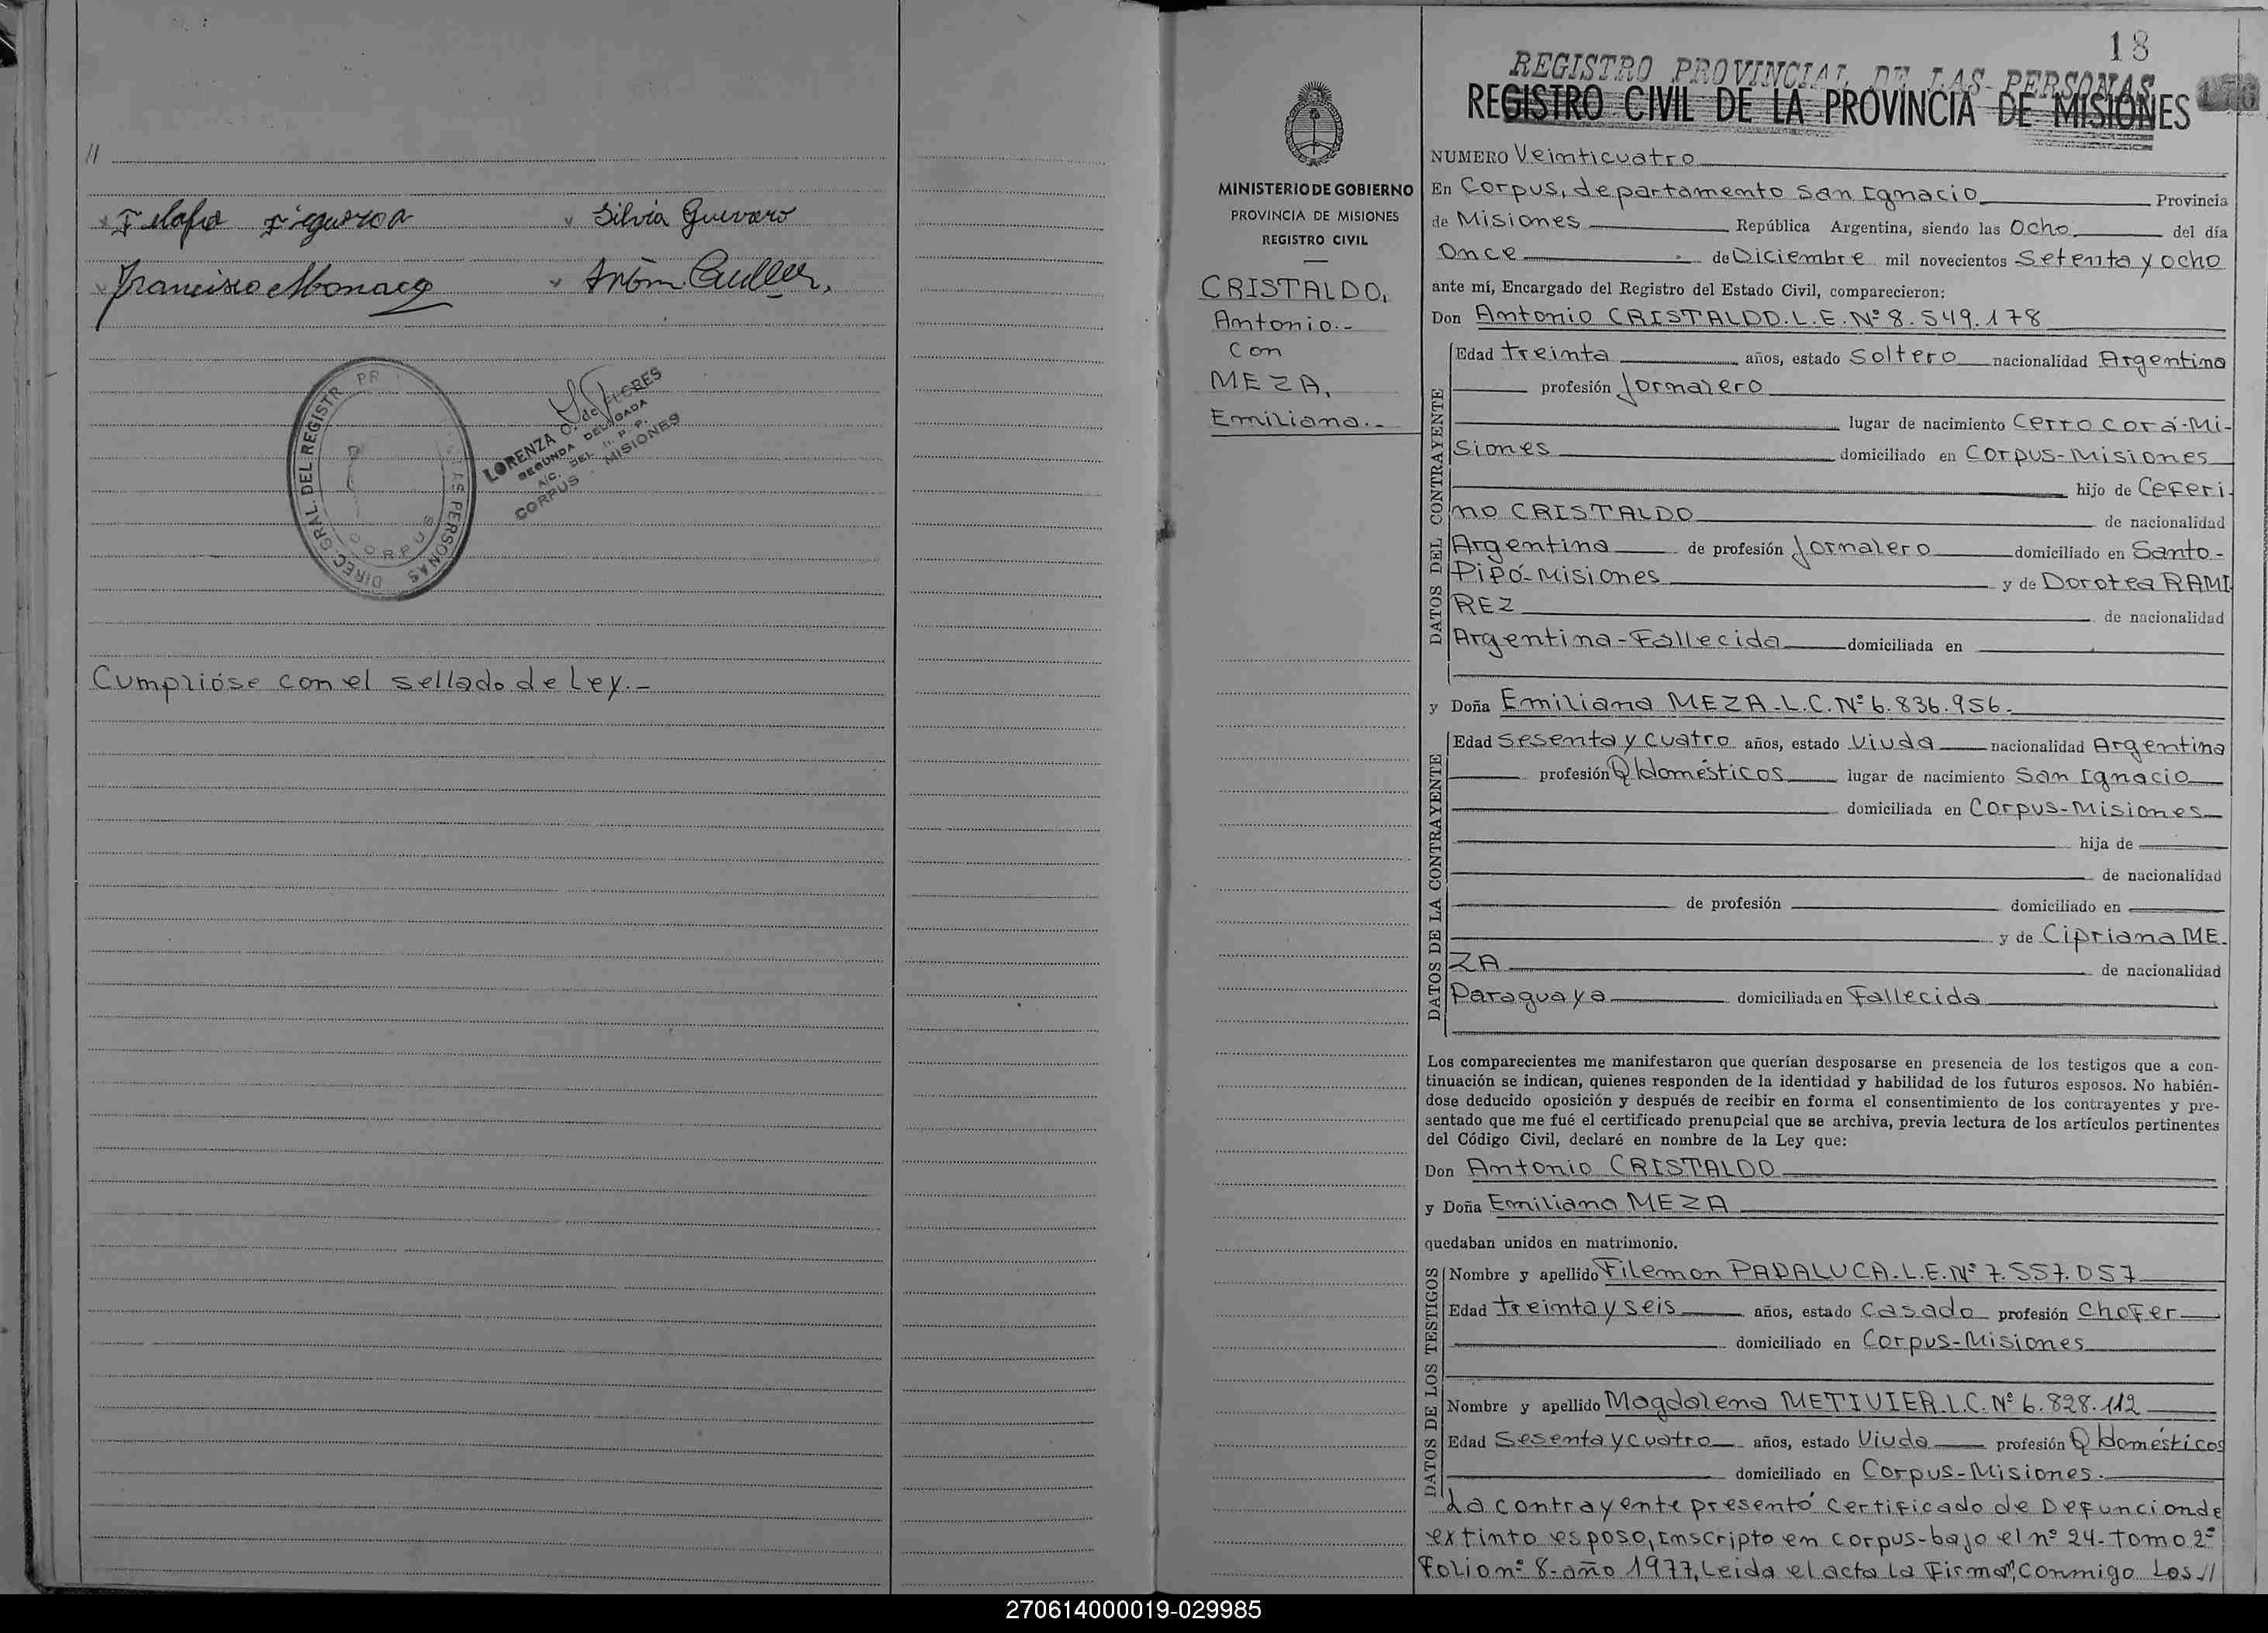 //
Silvia Guevaro
Francisco Monaco
DIREC. GRAL. DEL REGISTR PR LAS PERSONAS
CORPUS
LORENZA O. de FLORES
SEGUNDA DELEGADA
A/C. DEL R. P. P.
CORPUS - MISIONES
Cumplióse con el sellado de Ley.-
MINISTERIO DE GOBIERNO
PROVINCIA DE MISIONES
REGISTRO CIVIL
CRISTALDO,
Antonio.-
Con
MEZA,
Emiliana.-
18
REGISTRO PROVINCIAL DE LAS PERSONAS
REGISTRO CIVIL DE LA PROVINCIA DE MISIONES
NUMERO Veinticuatro
En Corpus, departamento San Ignacio Provincia
de Misiones República Argentina, siendo las Ocho del día
Once de Diciembre mil novecientos Setenta y ocho
ante mí, Encargado del Registro del Estado Civil, comparecieron:
Don Antonio CRISTALDO.L.E.Nº 8.549.178
DATOS DEL CONTRAYENTE
Edad treinta años, estado Soltero nacionalidad Argentina
profesión Jornalero
lugar de nacimiento Cerro Corá-Mi-
siones domiciliado en Corpus-Misiones
hijo de Ceferi-
no CRISTALDO de nacionalidad
Argentina de profesión Jornalero domiciliado en Santo-
Pipó-Misiones y de Dorotea RAMI
REZ de nacionalidad
Argentina-Fallecida domiciliada en
y Doña Emiliana MEZA.L.C.Nº 6.836.956.
DATOS DE LA CONTRAYENTE
Edad Sesenta y cuatro años, estado Viuda nacionalidad Argentina
profesión Q/domésticos lugar de nacimiento San Ignacio
domiciliada en Corpus-Misiones
hija de
de nacionalidad
de profesión domiciliado en
y de Cipriana ME-
ZA de nacionalidad
Paraguaya domiciliada en Fallecida
Los comparecientes me manifestaron que querían desposarse en presencia de los testigos que a con-
tinuación se indican, quienes responden de la identidad y habilidad de los futuros esposos. No habién-
dose deducido oposición y después de recibir en forma el consentimiento de los contrayentes y pre-
sentado que me fué el certificado prenupcial que se archiva, previa lectura de los artículos pertinentes
del Código Civil, declaré en nombre de la Ley que:
Don Antonio CRISTALDO
y Doña Emiliana MEZA
quedaban unidos en matrimonio.
DATOS DE LOS TESTIGOS
Nombre y apellido Filemon PADALUCA.L.E.Nº 7.557.057
Edad treinta y seis años, estado Casado profesión Chofer
domiciliado en Corpus-Misiones
Nombre y apellido Magdalena METIVIER.L.C.Nº 6.828.112
Edad Sesenta y cuatro años, estado Viuda profesión Q/domésticos
domiciliado en Corpus-Misiones.
La contrayente presentó certificado de Defuncion de
extinto esposo, Inscripto en corpus-bajo el nº 24-tomo 2º
Folio nº 8-año 1977, Leida el acta la Firman, Conmigo Los //
270614000019-029985